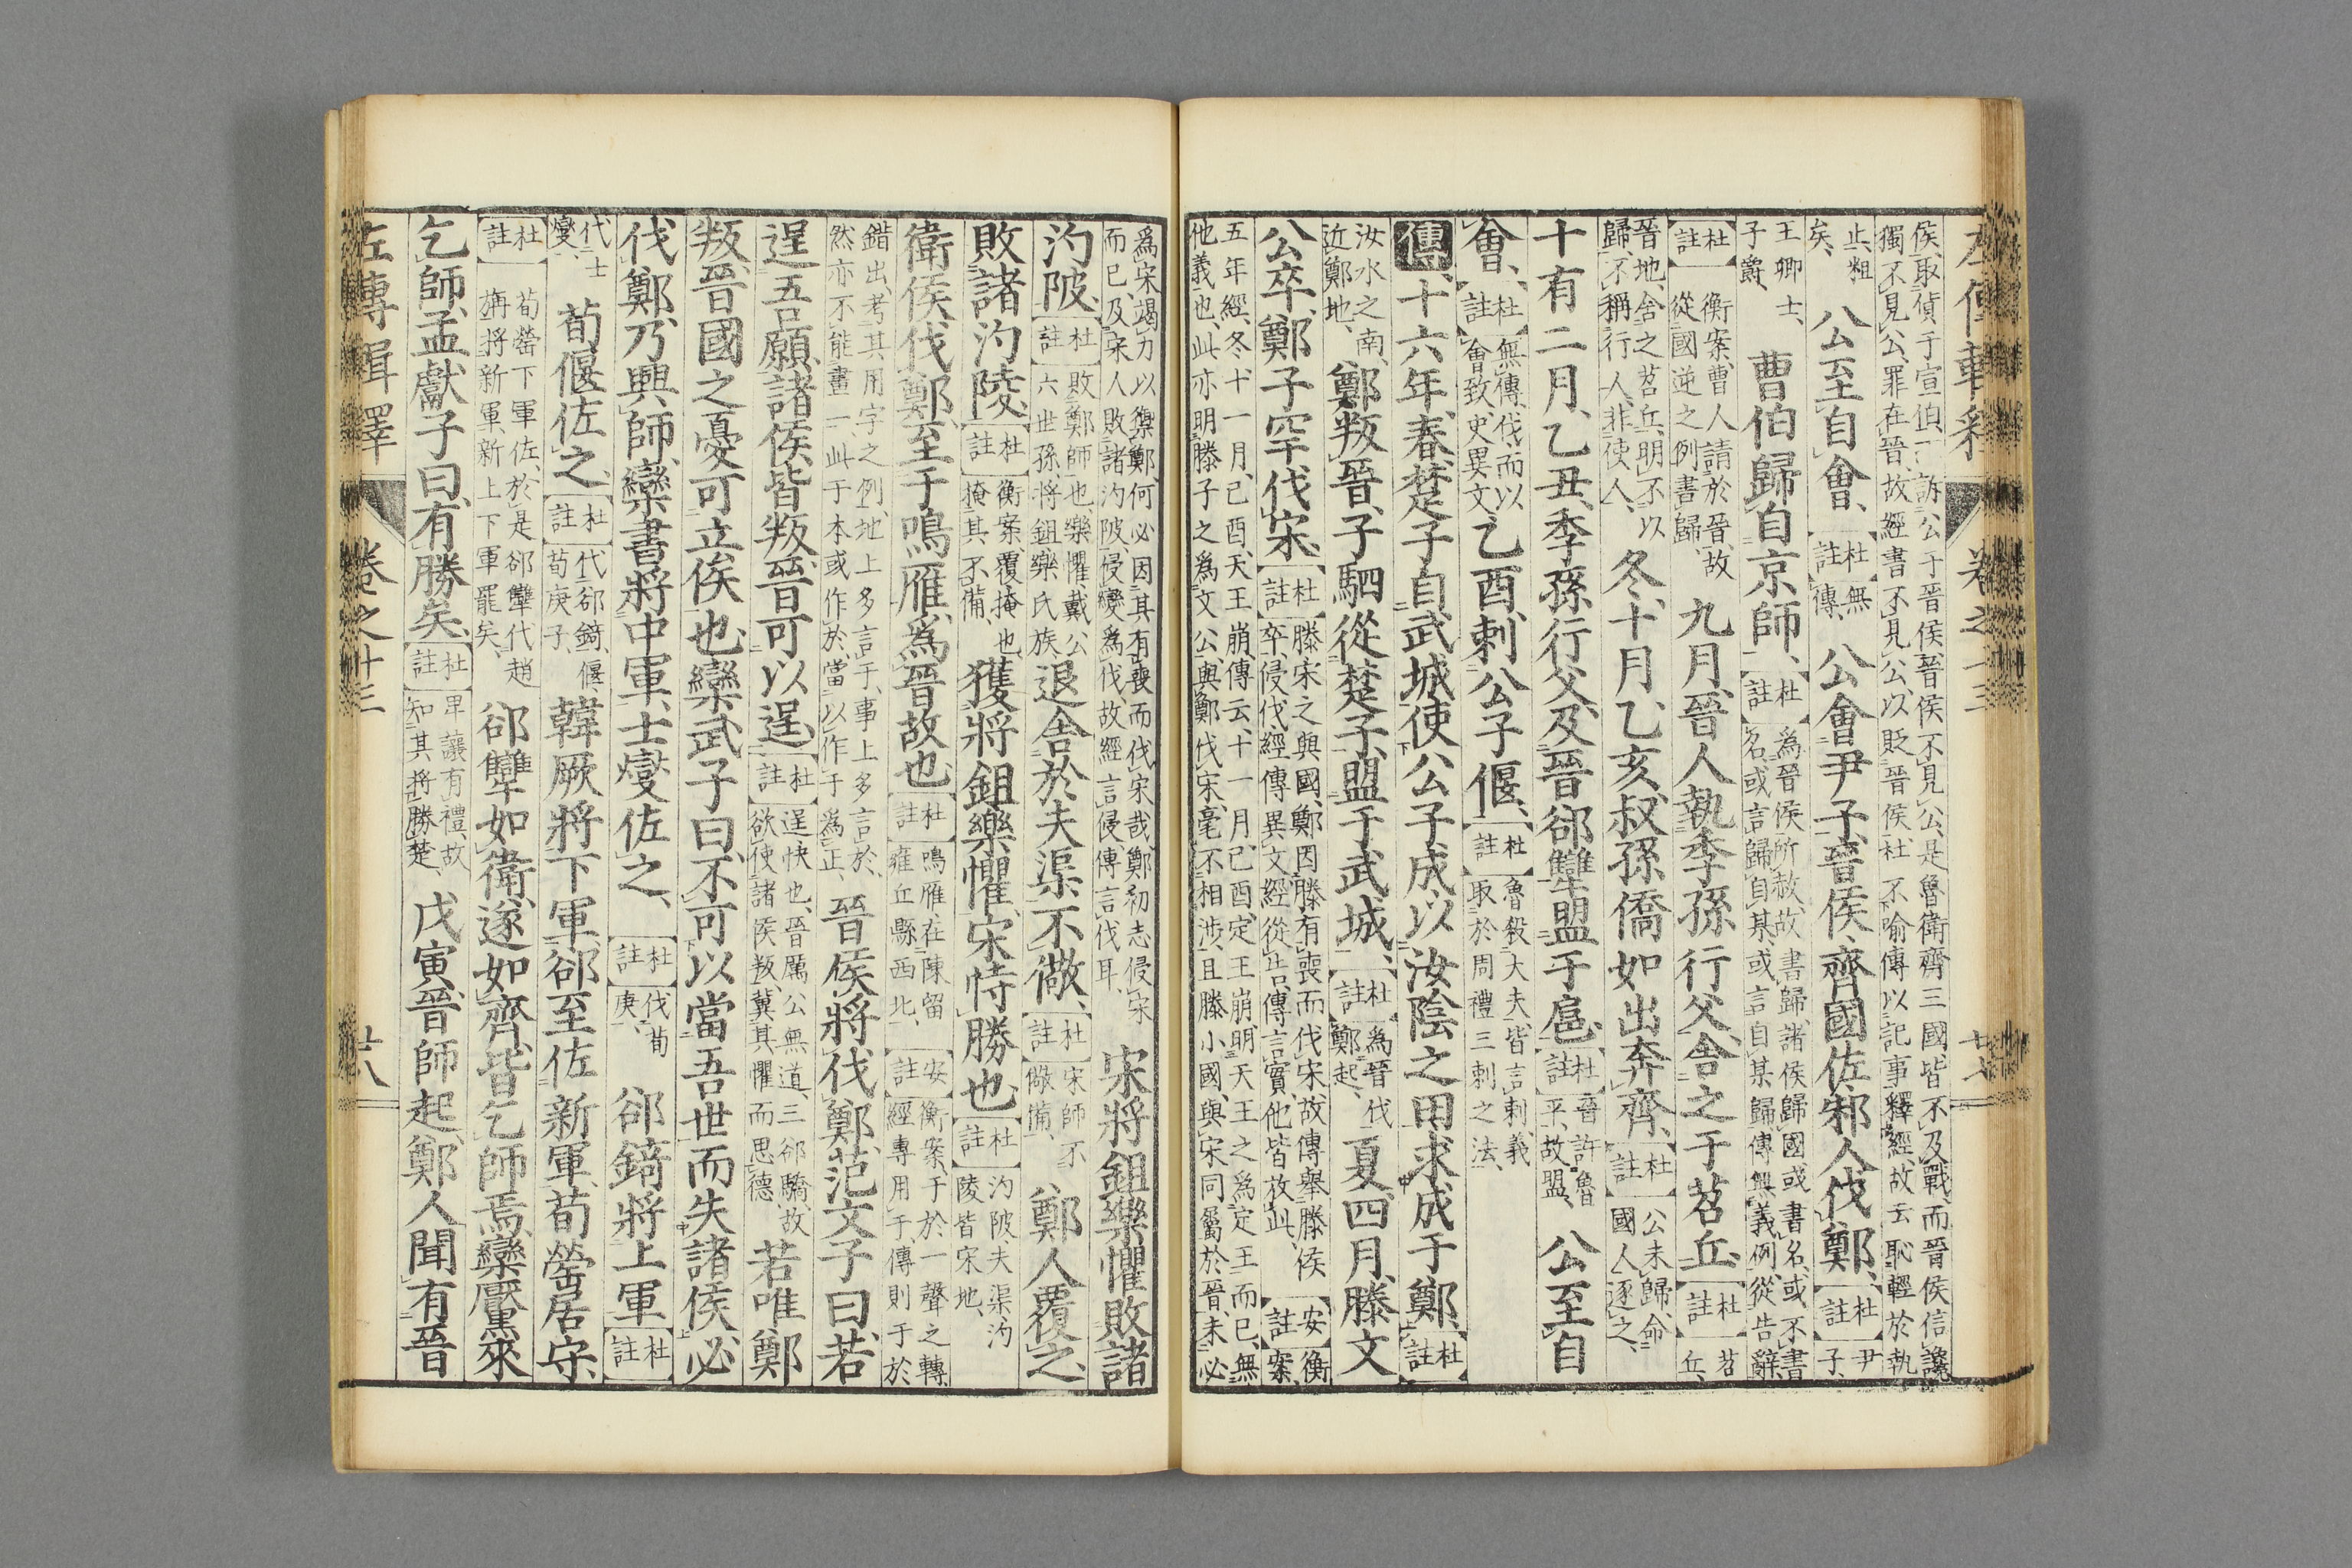 侯、取貨于宣伯、訴公于晉侯、晉侯不見公、是魯衛齊三國皆不及戰、而晉侯信讒
獨不見公、罪在晉、故經書不見公、以貶晉侯、杜不喻傳以記事釋經、故云恥輕於執
止、粗矣、公至自會、杜註無傳、公會尹子、晉侯、齊國佐、邾人伐鄭、杜註尹子、
王卿士、子爵、曹伯歸自京師、杜註為晉侯所赦、故書歸、諸侯歸國或書名、或不書名、或言歸自某、或言自某歸、傳無義例、從告辭
杜註衡案、曹人請於晉、故從國逆之例書歸、九月、晉人執季孫行父、舍之于苕丘、杜註苕丘、
晉地、舍之苕丘、明不以歸、不稱行人、非使人、冬、十月、乙亥、叔孫僑如出奔齊、杜註公未歸、命國人逐之、
十有二月、乙丑、季孫行父及晉郤犫盟于扈、杜註晉許魯平、故盟、公至自
會、杜註無傳、伐而以會致、史異文、乙酉、刺公子偃、杜註魯殺大夫、皆言刺、義取於周禮三刺之法、
傳、十六年、春、楚子自武城、使公子成以汝陰之田、求成于鄭、杜註
汝水之南、近鄭地、鄭叛晉、子駟從楚子盟于武城、杜註為晉伐鄭起、夏、四月、滕文
公卒、鄭子罕伐宋、杜註滕宋之與國、鄭因滕有喪而伐宋、故傳舉滕侯卒、侵伐、經傳異文、經從告、傳言實、他皆放此、安註衡案、
五年經、冬、十一月、己酉、天王崩、傳云、十一月、己酉、定王崩、明天王之為定王而已、無
他義也、此亦明滕子之為文公、與鄭伐宋、毫不相涉、且滕小國、與宋同屬於晉、未必
左傳輯釋 卷之十三 廿七
為宋竭力以禦鄭、何必因其有喪而伐宋哉、鄭初志侵宋
而已、及宋人敗諸汋陂、侵變為伐、故經言侵、傳言伐耳、宋將鉏樂懼敗諸
汋陂、杜註敗鄭師也、樂懼、戴公六世孫、將鉏樂氏族、退舍於夫渠、不儆、杜註宋師不儆備、鄭人覆之、
敗諸汋陵、杜註衡案、覆、掩也、掩其不備、獲將鉏樂懼、宋恃勝也、杜註汋陂、夫渠、汋陵、皆宋地、
衛侯伐鄭、至于鳴雁、為晉故也、杜註鳴雁在陳留雍丘縣西北、安註衡案、于於一聲之轉、經專用于、傳則于於
錯出、考其用字之例、地上多言于、事上多言於、然亦不能畫一、此于本或作於、當以作于為正、晉侯將伐鄭、范文子曰、若
逞吾願、諸侯皆叛、晉可以逞、杜註逞、快也、晉厲公無道、三郤驕、故欲使諸侯叛、冀其懼而思德、若唯鄭
叛、晉國之憂、可立俟也、欒武子曰、不可以當吾世而失諸侯、必
伐鄭、乃興師、欒書將中軍、士燮佐之、杜註伐荀庚、郤錡將上軍、杜註
代士燮、荀偃佐之、杜註代郤錡、偃、荀庚子、韓厥將下軍、郤至佐新軍、荀罃居守、
杜註荀罃下軍佐、於是郤犫代趙旃將新軍、新上下軍罷矣、郤犫如衛、遂如齊、皆乞師焉、欒黶來
乞師、孟獻子曰、有勝矣、杜註卑讓有禮、故知其將勝楚、戊寅、晉師起、鄭人聞有晉
左傳輯釋 卷之十三 廿八